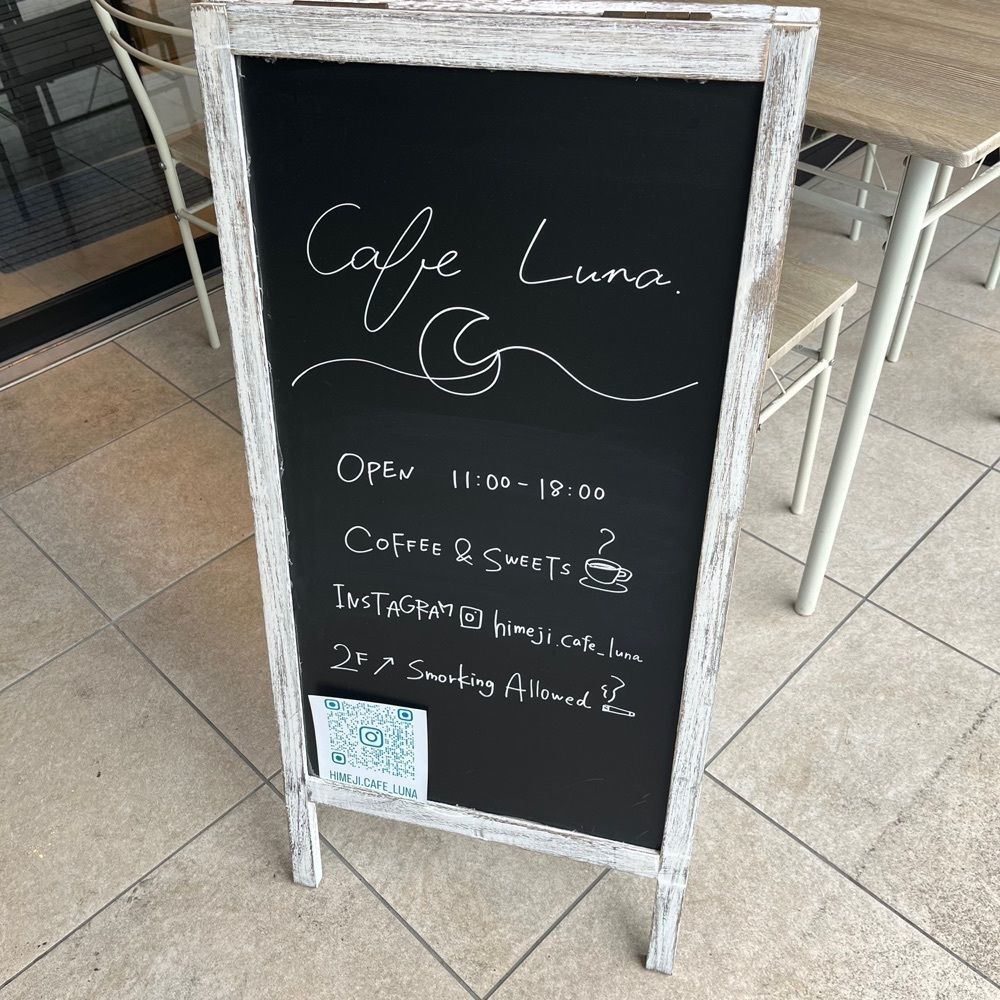 Cafe Luna.
OPEN 11:00-18:00
COFFEE & SWEETS
INSTAGRAM himeji.cafe_luna
2F↗ Smorking Allowed
HIMEJI.CAFE_LUNA